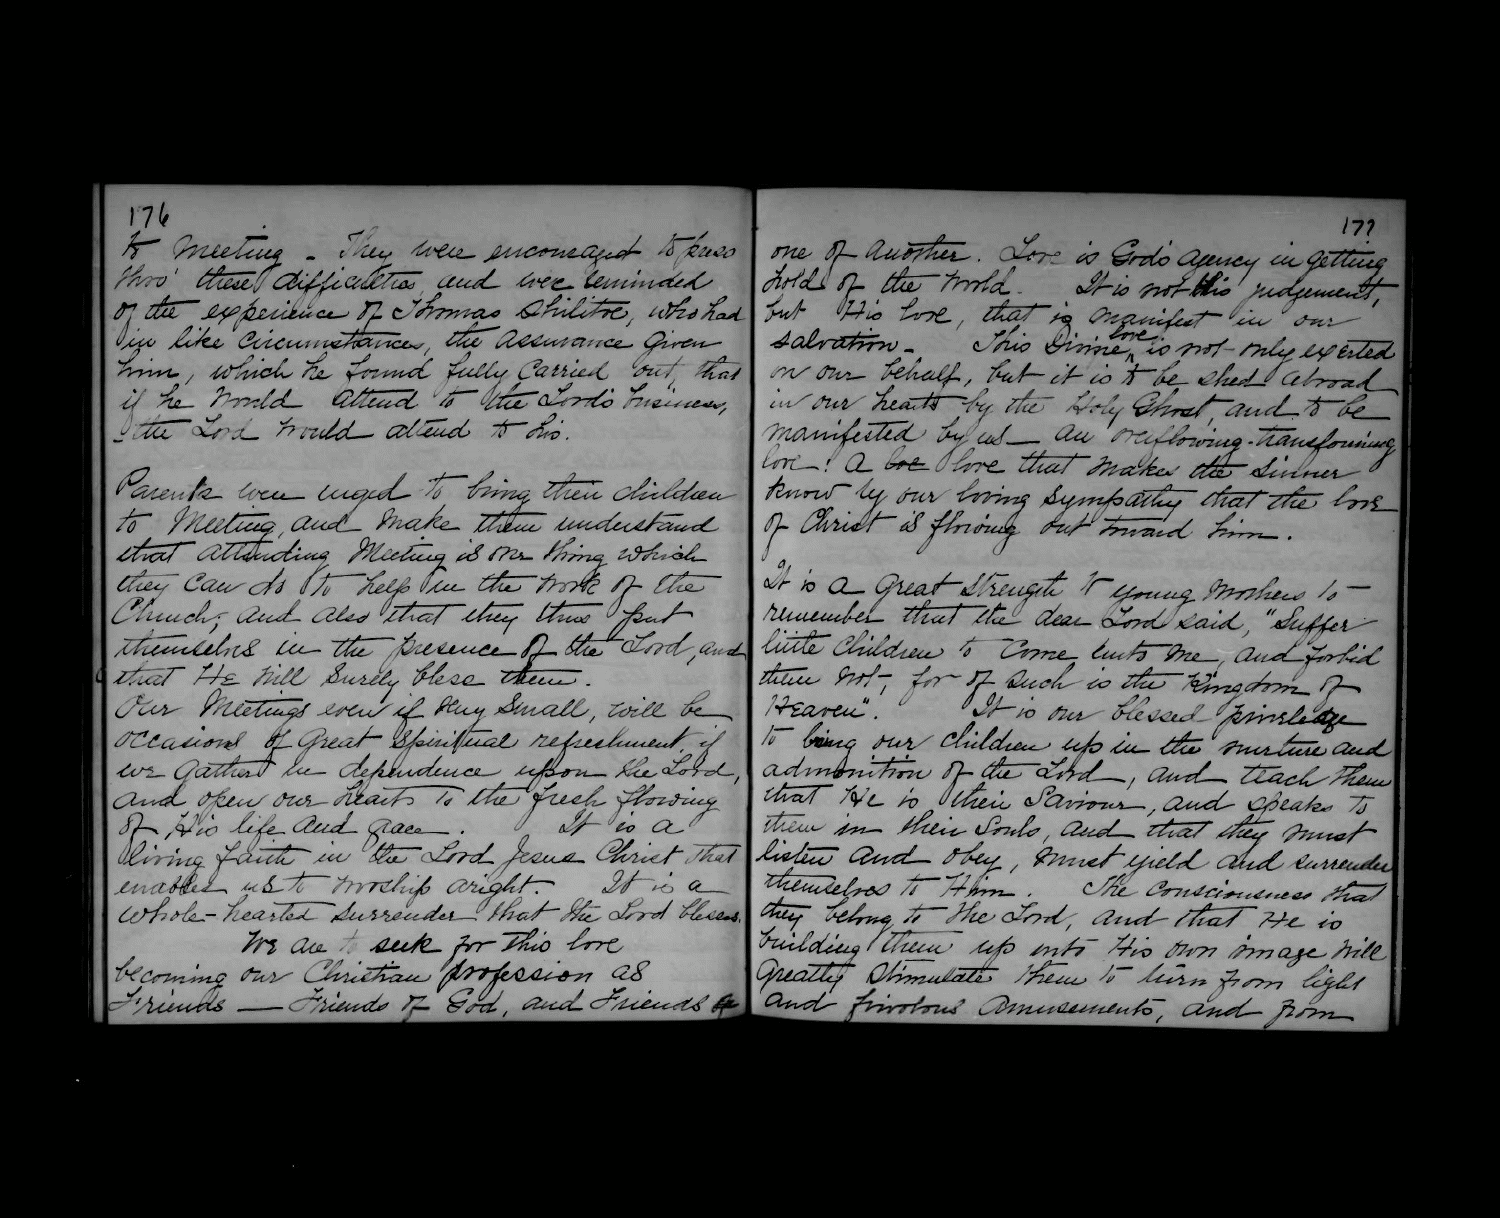 176
to Meeting - They were encouraged to press
thro' these difficulties and were reminded
of the experience of Thomas Shilitoe, who had
in like circumstances, the assurance given
him, which he found fully carried out, that
if he would attend to the Lord's business,
the Lord would attend to his.
Parents were urged to bring their children
to Meeting, and make them understand
that attending Meeting is one thing which
they can do to help in the work of the
Church; and also that they thus put
themselves in the presence of the Lord, and
that He will surely bless them.
Our Meetings even if very small, will be
occasions of great spiritual refreshment, if
we gather in dependence upon the Lord,
and open our hearts to the fresh flowing
of His life and grace. It is a
living faith in the Lord Jesus Christ that
enables us to worship aright. It is a
whole-hearted surrender that the Lord blesses.
We are to seek for this love
becoming our Christian profession as
Friends — Friends of God, and Friends
177
one of another. Love is God's agency in getting
hold of the world. It is not His judgement,
but His love, that is manifest in our
salvation - This Divine love is not only exerted
on our behalf, but it is to be shed abroad
in our hearts by the Holy Ghost, and to be
manifested by us — an overflowing-transforming
love! A love that makes the sinner
know by our loving sympathy that the love
of Christ is flowing out toward him.
It is a great strength to young Mothers to
remember that the dear Lord said, "Suffer
little children to come unto me, and forbid
them not, for of such is the Kingdom of
Heaven". It is our blessed privelege
to bring our children up in the nurture and
admonition of the Lord, and teach them
that He is their Saviour, and speaks to
them in their souls, and that they must
listen and obey, must yield and surrender
themselves to Him. The consciousness that
they belong to the Lord, and that He is
building them up into His own image will
greatly stimulate them to turn from light
and frivolous amusements, and from